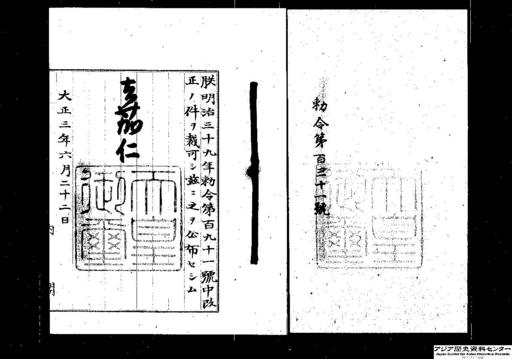 勅令第百三十一號
朕明治三十九年勅令第百九十一號中改
正ノ件ヲ裁可シ茲ニ之ヲ公布セシム
嘉仁
天皇
御璽
大正三年六月二十二日
内閣
アジア歴史資料センター
Japan Center for Asian Historical Records